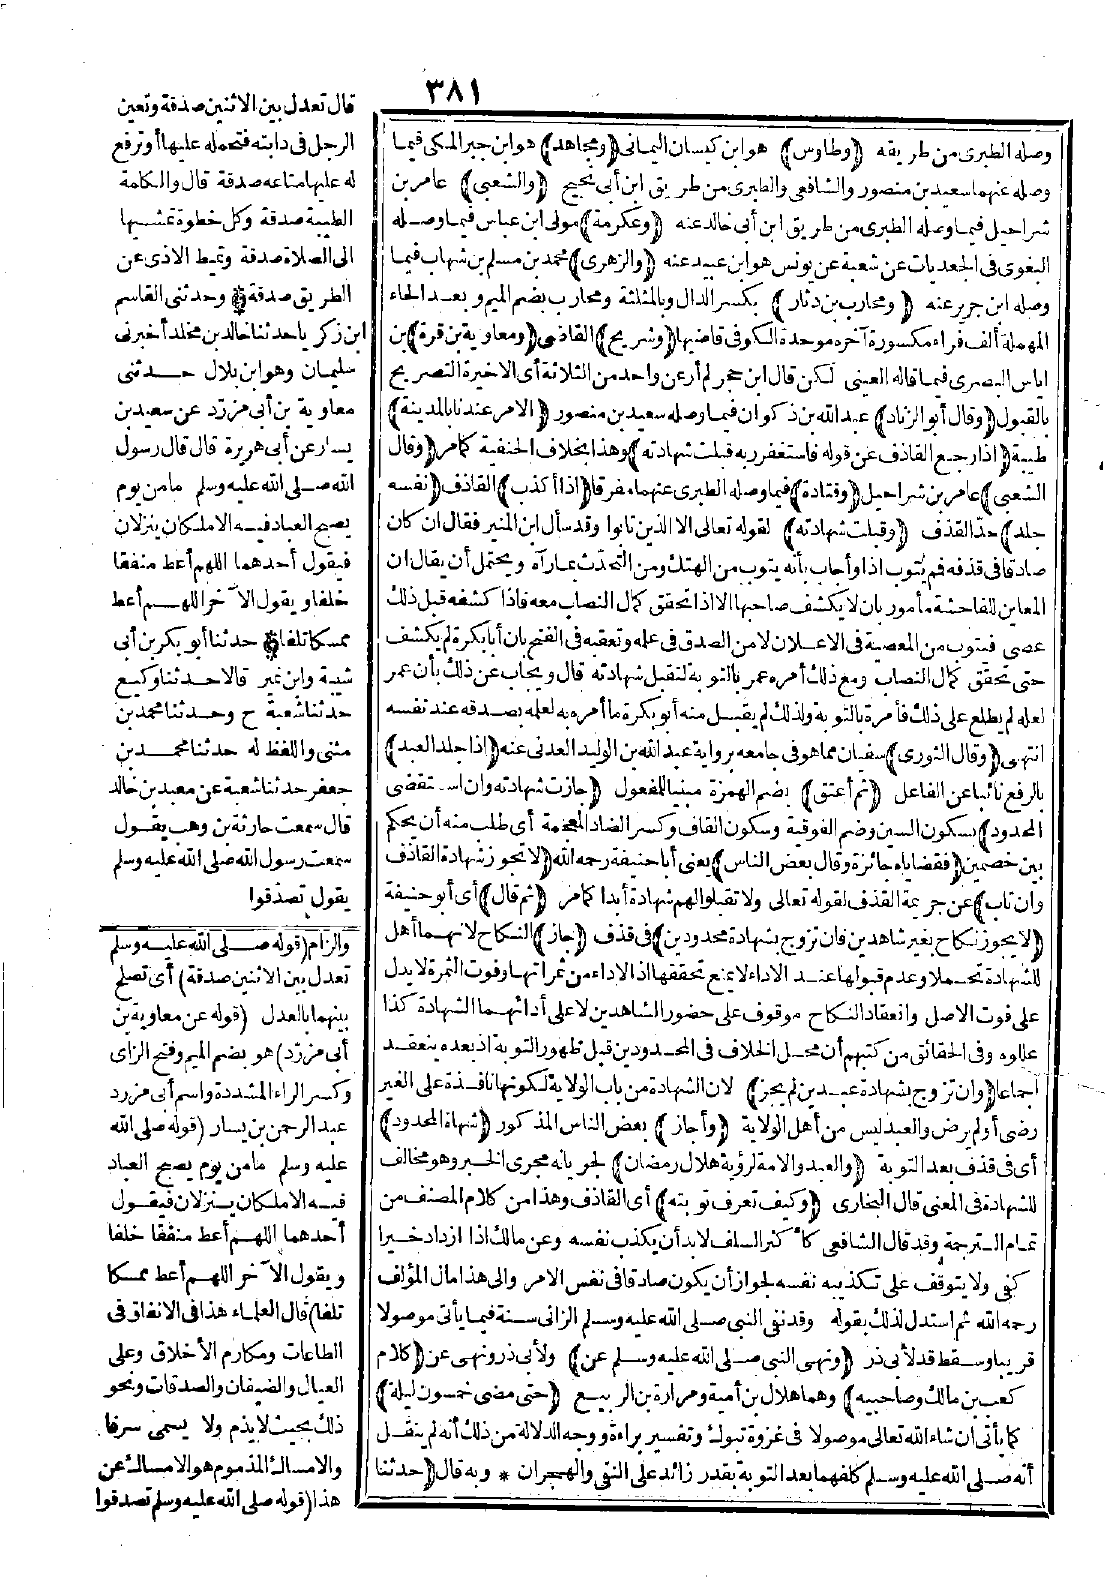 ٣٨١
وصله الطبرى من طريقه (وطاوس) هو ابن كيسان اليمانى (ومجاهد) هو ابن جبر المكى فيما
وصله عنهما سعيد بن منصور والشافعى والطبرى من طريق ابن أبى نجيح (والشعبى) عامر بن
شراحيل فيما وصله الطبرى من طريق ابن أبى خالد عنه (وعكرمة) مولى ابن عباس فيما وصله
البغوى فى الجعديات عن شعبة عن يونس هو ابن عبيد عنه (والزهرى) محمد بن مسلم بن شهاب فيما
وصله ابن جرير عنه (ومحارب بن دثار) بكسر الدال وبالمثلثة ومحارب بضم الميم وبعد الحاء
المهملة ألف فراء مكسورة آخره موحدة الكوفى قاضيها (وشريح) القاضى (ومعاوية بن قرة) بن
اياس البصرى فيما قاله العينى لكن قال ابن حجر لم أر عن واحد من الثلاثة أى الاخيرة التصريح
بالقبول (وقال أبو الزناد) عبد الله بن ذكوان فيما وصله سعيد بن منصور (الامر عندنا بالمدينة)
طيبة (اذا رجع القاذف عن قوله فاستغفر ربه قبلت شهادته) وهذا بخلاف الحنفية كما مر (وقال
الشعبى) عامر بن شراحيل (وقتادة) فيما وصله الطبرى عنهما مفرقا (اذا أكذب) القاذف (نفسه
جلد) حد القذف (وقبلت شهادته) لقوله تعالى الا الذين تابوا وقد سأل ابن المنير فقال ان كان
صادقا فى قذفه فم يتوب اذا وأجاب بأنه يتوب من الهتك ومن التحدث بما رآه ويحتمل أن يقال ان
المعاين للفاحشة مأمور بان لا يكشف صاحبها الا اذا تحقق كمال النصاب معه فاذا كشفه قبل ذلك
عصى فيتوب من المعصية فى الاعلان لا من الصدق فى علمه وتعقبه فى الفتح بان أبا بكرة لم يكشف
حتى تحقق كمال النصاب ومع ذلك أمره عمر بالتوبة لتقبل شهادته قال ويجاب عن ذلك بأن عمر
لعله لم يطلع على ذلك فأمره بالتوبة ولذلك لم يقبل منه أبو بكرة ما أمره به لعلمه بصدقه عند نفسه
انتهى (وقال الثورى) سفيان مما هو فى جامعه برواية عبد الله بن الوليد العدنى عنه (اذا جلد العبد)
بالرفع نائبا عن الفاعل (ثم أعتق) بضم الهمزة مبنيا للمفعول (جازت شهادته وان استقضى
المحدود) بسكون السين وضم الفوقية وسكون القاف وكسر الضاد المعجمة أى طلب منه أن يحكم
بين خصمين (فقضاياه جائزة وقال بعض الناس) يعنى أبا حنيفة رحمه الله (لا تجوز شهادة القاذف
وان تاب) عن جريمة القذف لقوله تعالى ولا تقبلوا لهم شهادة أبدا كما مر (ثم قال) أى أبو حنيفة
(لا يجوز نكاح بغير شاهدين فان تزوج بشهادة محدودين) فى قذف (جاز) النكاح لانهما أهل
للشهادة تحملا وعدم قبولها عند الاداء لا يمنع تحققها اذ الاداء من ثمراتها وفوت الثمرة لا يدل
على فوت الاصل وانعقاد النكاح موقوف على حضور الشاهدين لا على أدائهما الشهادة كذا
عللوه وفى الحقائق من كتبهم أن محل الخلاف فى المحدودين قبل ظهور التوبة اذ بعده ينعقد
اجماعا (وان تزوج بشهادة عبدين لم يجز) لان الشهادة من باب الولاية لكونها نافذة على الغير
رضى أو لم يرض والعبد ليس من أهل الولاية (وأجاز) بعض الناس المذكور (شهادة المحدود)
أى فى قذف بعد التوبة (والعبد والامة لرؤية هلال رمضان) لجريانه مجرى الخبر وهو مخالف
للشهادة فى المعنى قال البخارى (وكيف تعرف توبته) أى القاذف وهذا من كلام المصنف من
تمام الترجمة وقد قال الشافعى كأكثر السلف لا بد أن يكذب نفسه وعن مالك اذا ازداد خيرا
كفى ولا يتوقف على تكذيبه نفسه لجواز أن يكون صادقا فى نفس الامر والى هذا مال المؤلف
رحمه الله ثم استدل لذلك بقوله وقد نفى النبى صلى الله عليه وسلم الزانى سنة فيما يأتى موصولا
قريبا وسقط قد لأبى ذر (ونهى النبى صلى الله عليه وسلم عن) ولأبى ذر ونهى عن (كلام
كعب بن مالك وصاحبيه) وهما هلال بن أمية ومرارة بن الربيع (حتى مضى خمسون ليلة)
كما يأتى ان شاء الله تعالى موصولا فى غزوة تبوك وتفسير براءة ووجه الدلالة من ذلك أنه لم ينقل
أنه صلى الله عليه وسلم كلفهما بعد التوبة بقدر زائد على النفى والهجران * وبه قال (حدثنا
قال تعدل بين الاثنين صدقة وتعين
الرجل فى دابته فتحمله عليها أو ترفع
له عليها متاعه صدقة قال والكلمة
الطيبة صدقة وكل خطوة تمشيها
الى الصلاة صدقة وتميط الاذى عن
الطريق صدقة * وحدثنى القاسم
ابن زكريا حدثنا خالد بن مخلد أخبرنى
سليمان وهو ابن بلال حدثنى
معاوية بن أبى مزرد عن سعيد بن
يسار عن أبى هريرة قال قال رسول
الله صلى الله عليه وسلم ما من يوم
يصبح العباد فيه الا ملكان ينزلان
فيقول أحدهما اللهم أعط منفقا
خلفا ويقول الآخر اللهم أعط
ممسكا تلفا * حدثنا أبو بكر بن أبى
شيبة وابن نمير قالا حدثنا وكيع
حدثنا شعبة ح وحدثنا محمد بن
مثنى واللفظ له حدثنا محمد بن
جعفر حدثنا شعبة عن معبد بن خالد
قال سمعت حارثة بن وهب يقول
سمعت رسول الله صلى الله عليه وسلم
يقول تصدقوا
والزام (قوله صلى الله عليه وسلم
تعدل بين الاثنين صدقة) أى تصلح
بينهما بالعدل (قوله عن معاوية بن
أبى مزرد) هو بضم الميم وفتح الزاى
وكسر الراء المشددة واسم أبى مزرد
عبد الرحمن بن يسار (قوله صلى الله
عليه وسلم ما من يوم يصبح العباد
فيه الا ملكان ينزلان فيقول
أحدهما اللهم أعط منفقا خلفا
ويقول الآخر اللهم أعط ممسكا
تلفا) قال العلماء هذا فى الانفاق فى
الطاعات ومكارم الأخلاق وعلى
العيال والضيفان والصدقات ونحو
ذلك بحيث لا يذم ولا يسمى سرفا
والامساك المذموم هو الامساك عن
هذا (قوله صلى الله عليه وسلم تصدقوا